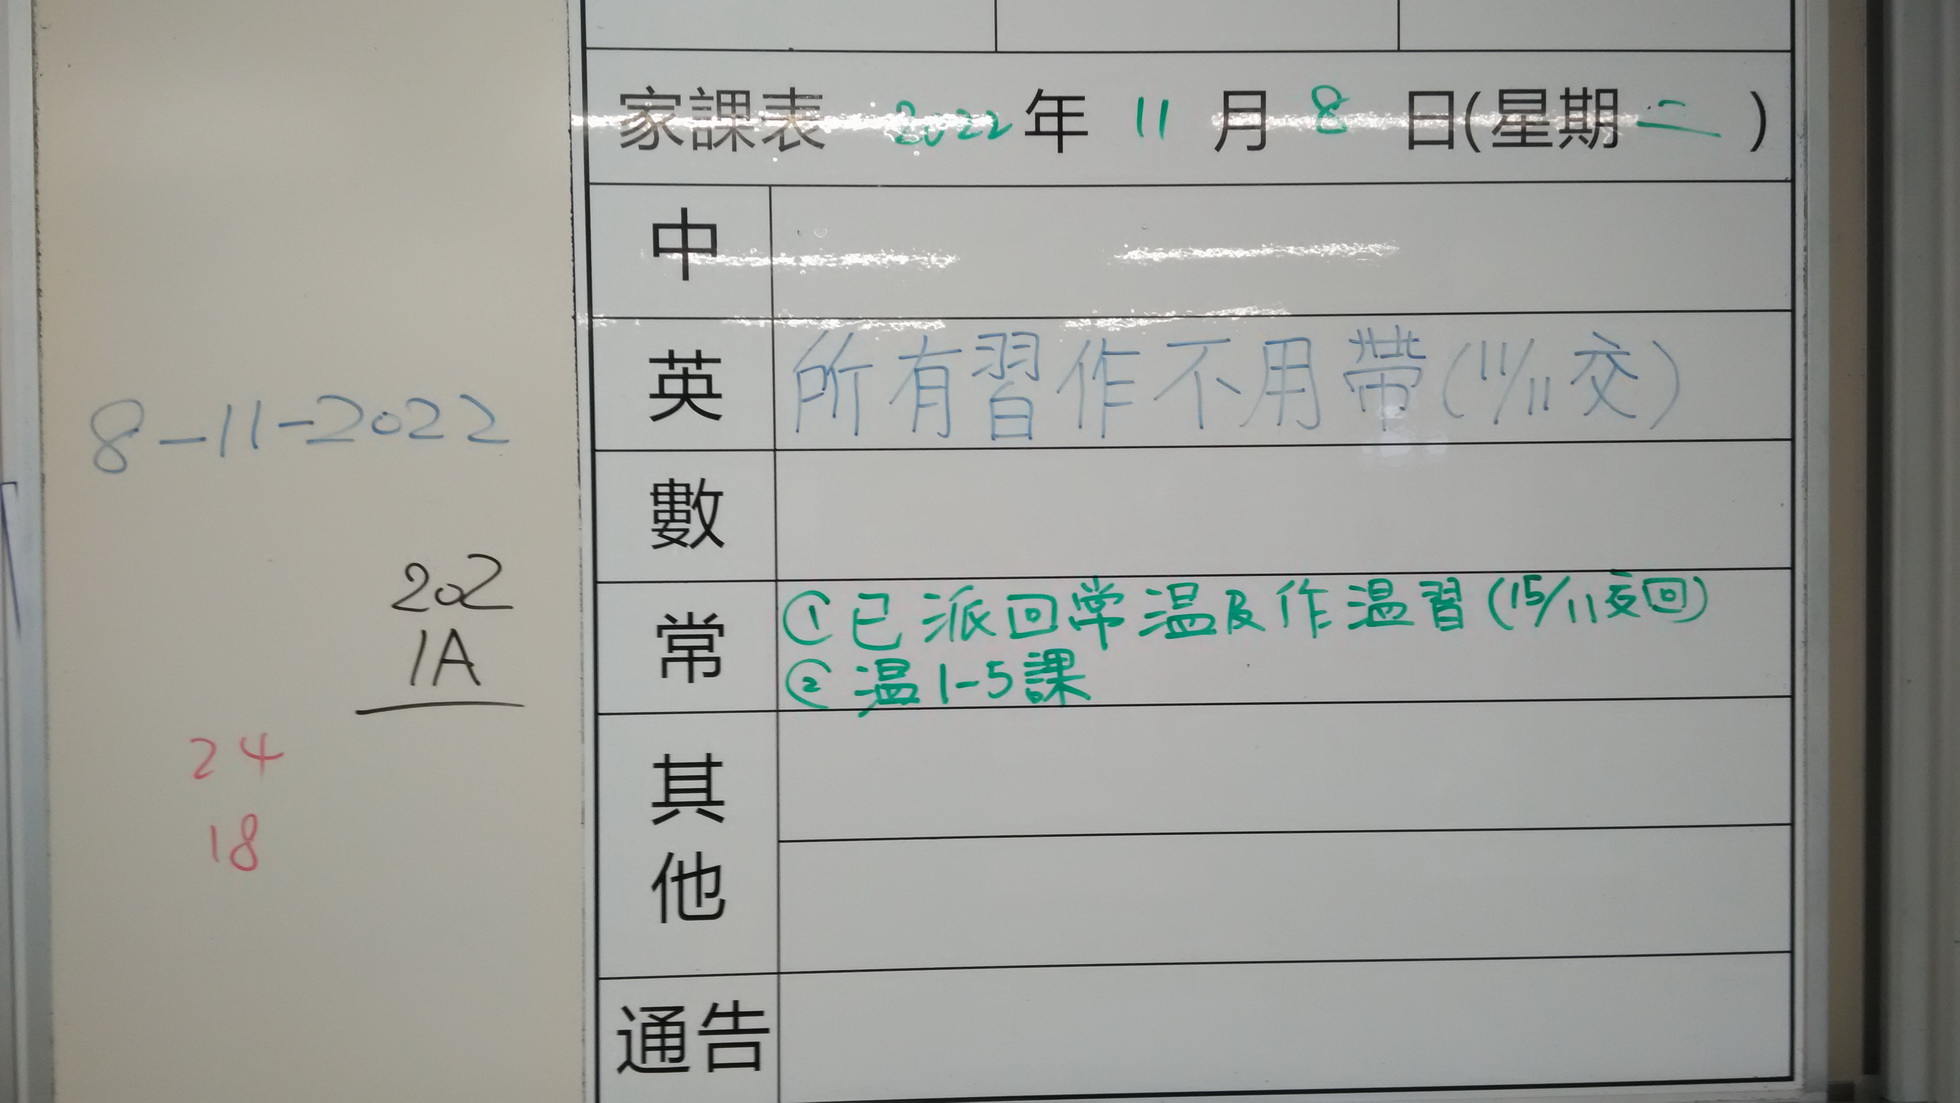 家課表 2022年 11 月 8 日(星期二)
中
英 所有習作不用帶(11/11交)
數
常 ①已派回常温及作温習(15/11交回)
②温1-5課
其他
通告
8-11-2022
202
1A
24
18